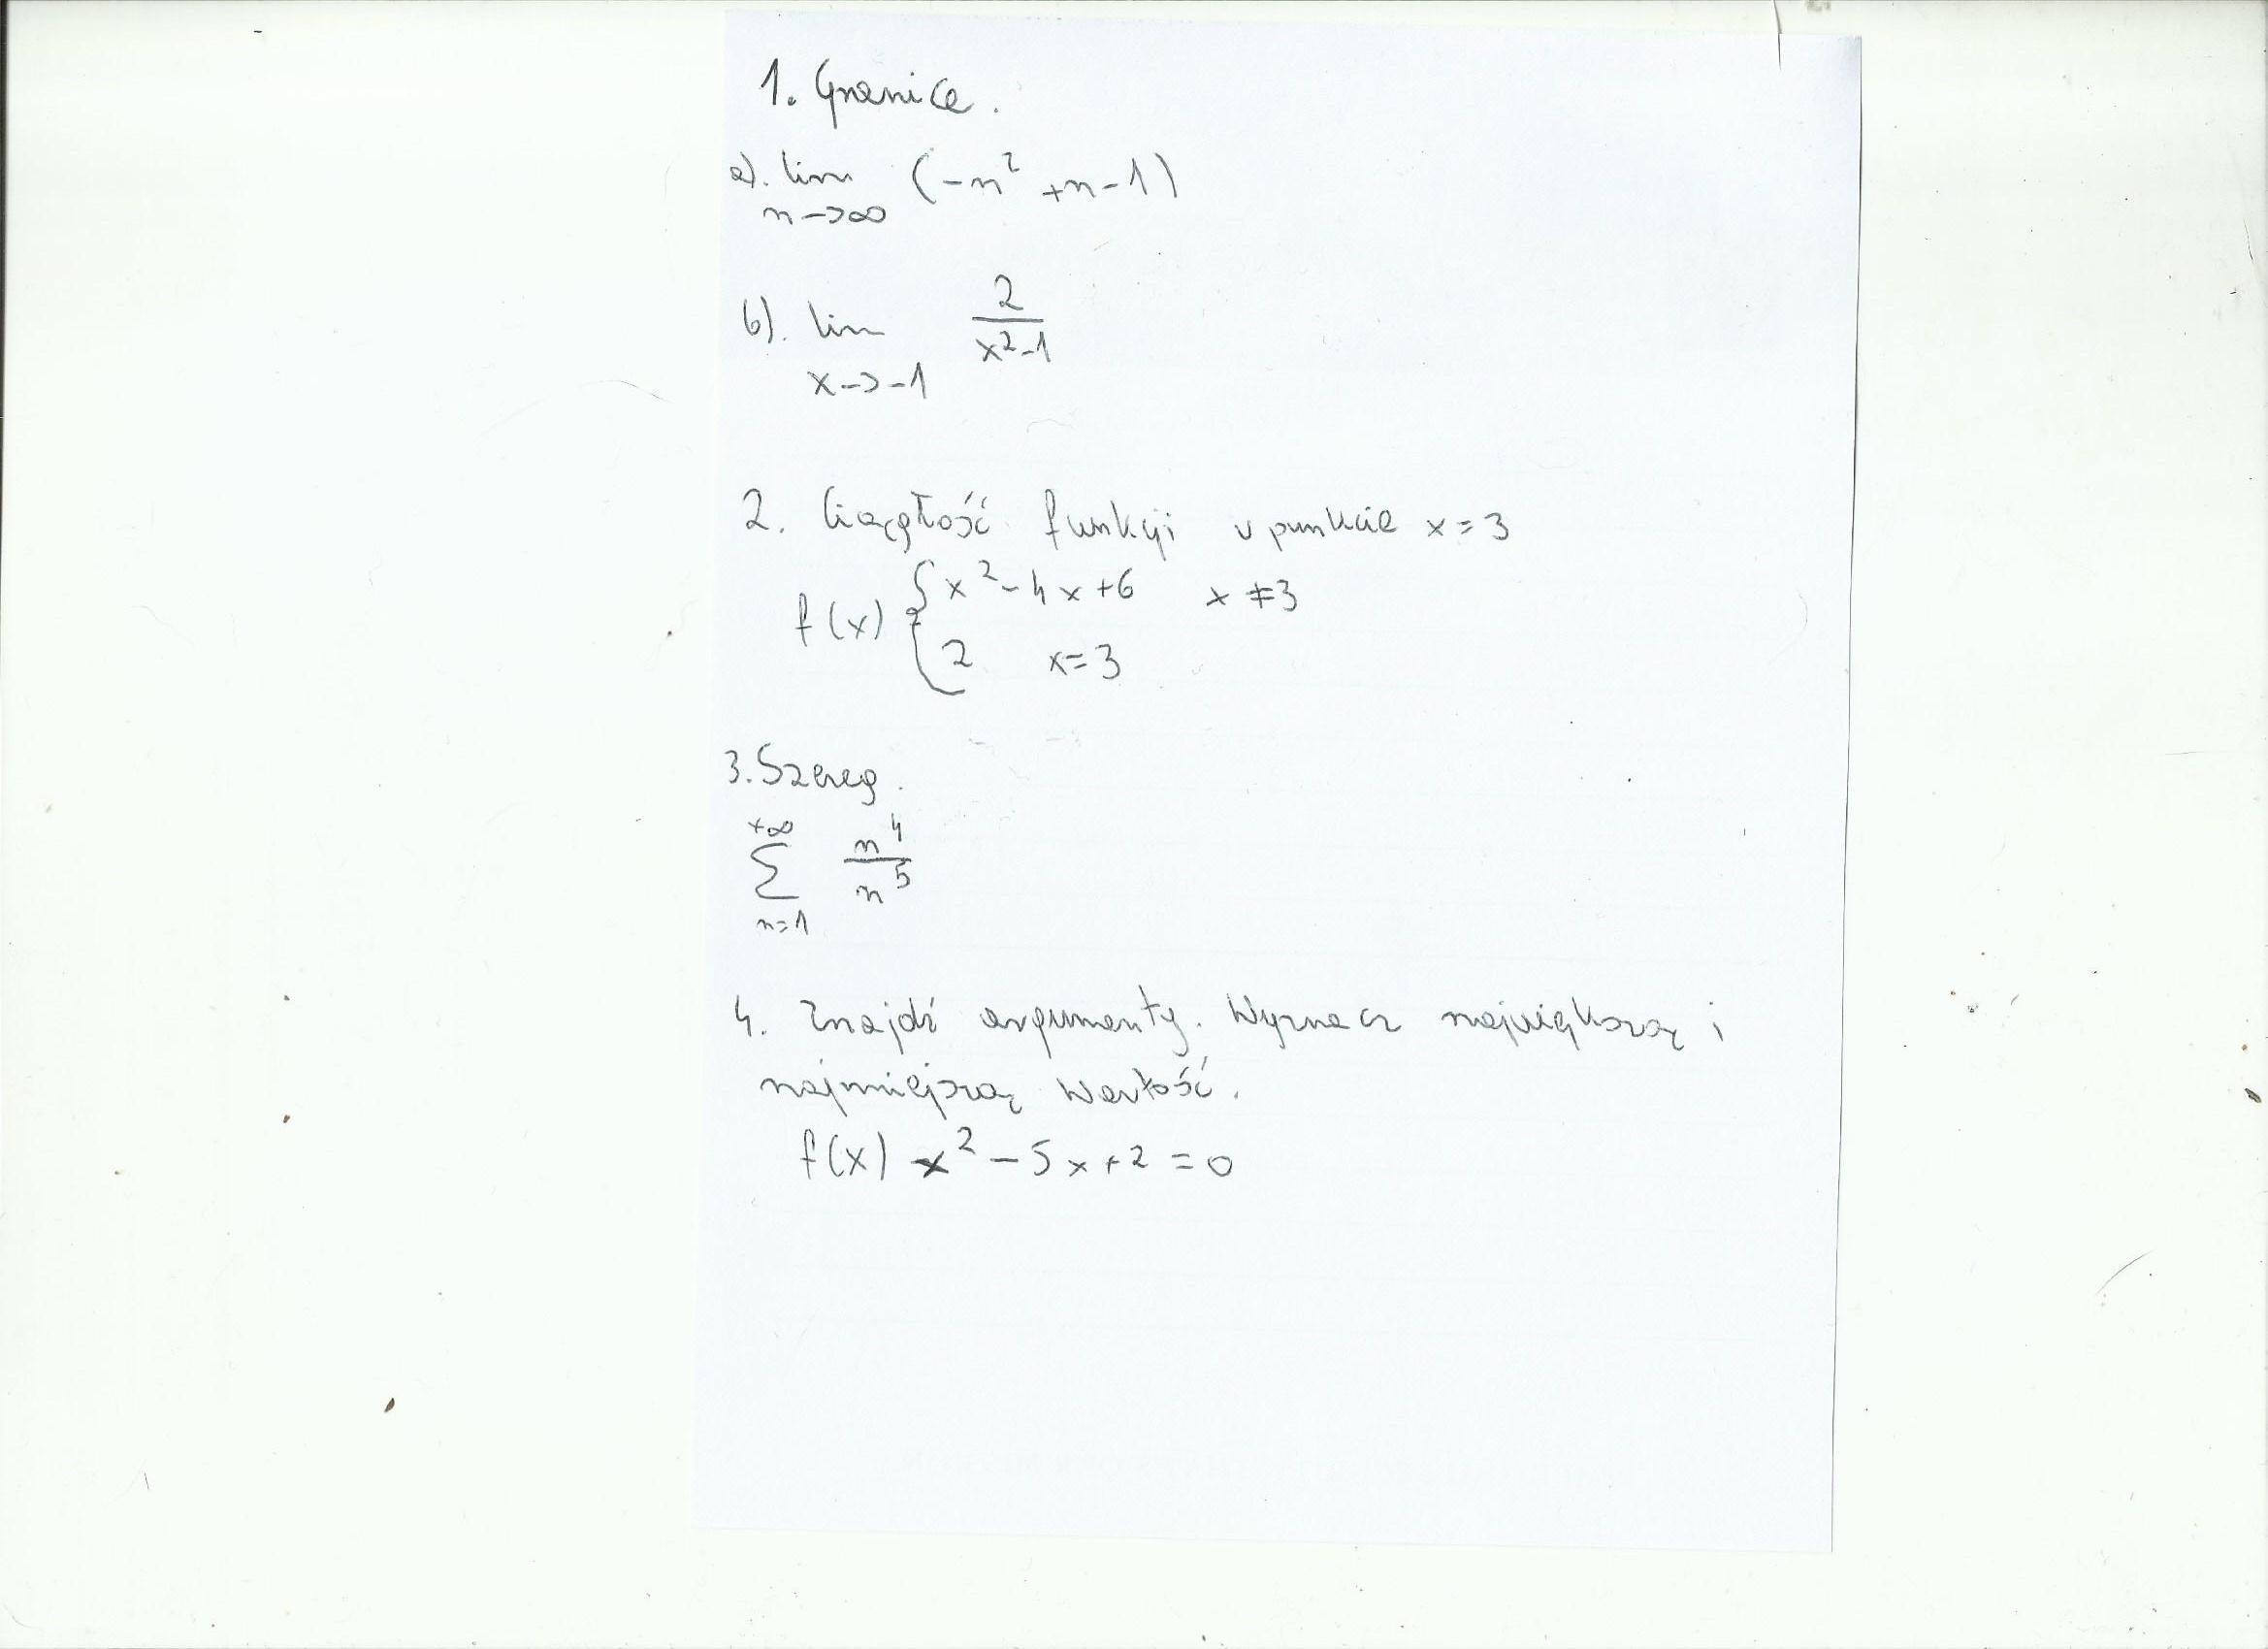 1. Granice.
a). lim (-n² +n-1)
n->∞
b). lim 2/(x²-1)
x->-1
2. Ciągłość funkcji w punkcie x=3
f(x) { x²-4x+6 x≠3
2 x=3
3. Szereg.
+∞
∑ n⁴/n⁵
n=1
4. Znajdź argumenty. Wyznacz największą i
najmniejszą wartość.
f(x) x²-5x+2=0